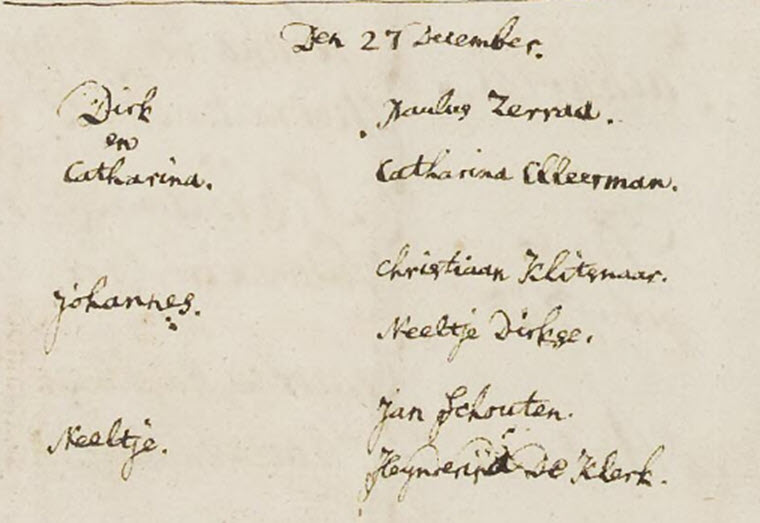 Den 27 December.
Dirk
en
Catharina.
Paulus Zerraa.
Catharina Elleerman.
Johannes.
Christiaan Klitsnaar.
Neeltje Dirkse.
Neeltje.
Jan Schouten.
De Klerk.